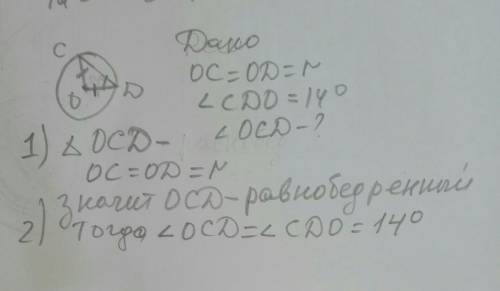 C
Дано
O D
OC=OD=r
∠CDO=14°
∠OCD-?
1) △OCD-
OC=OD=r
Значит OCD-равнобедренный
2) тогда ∠OCD=∠CDO=14°